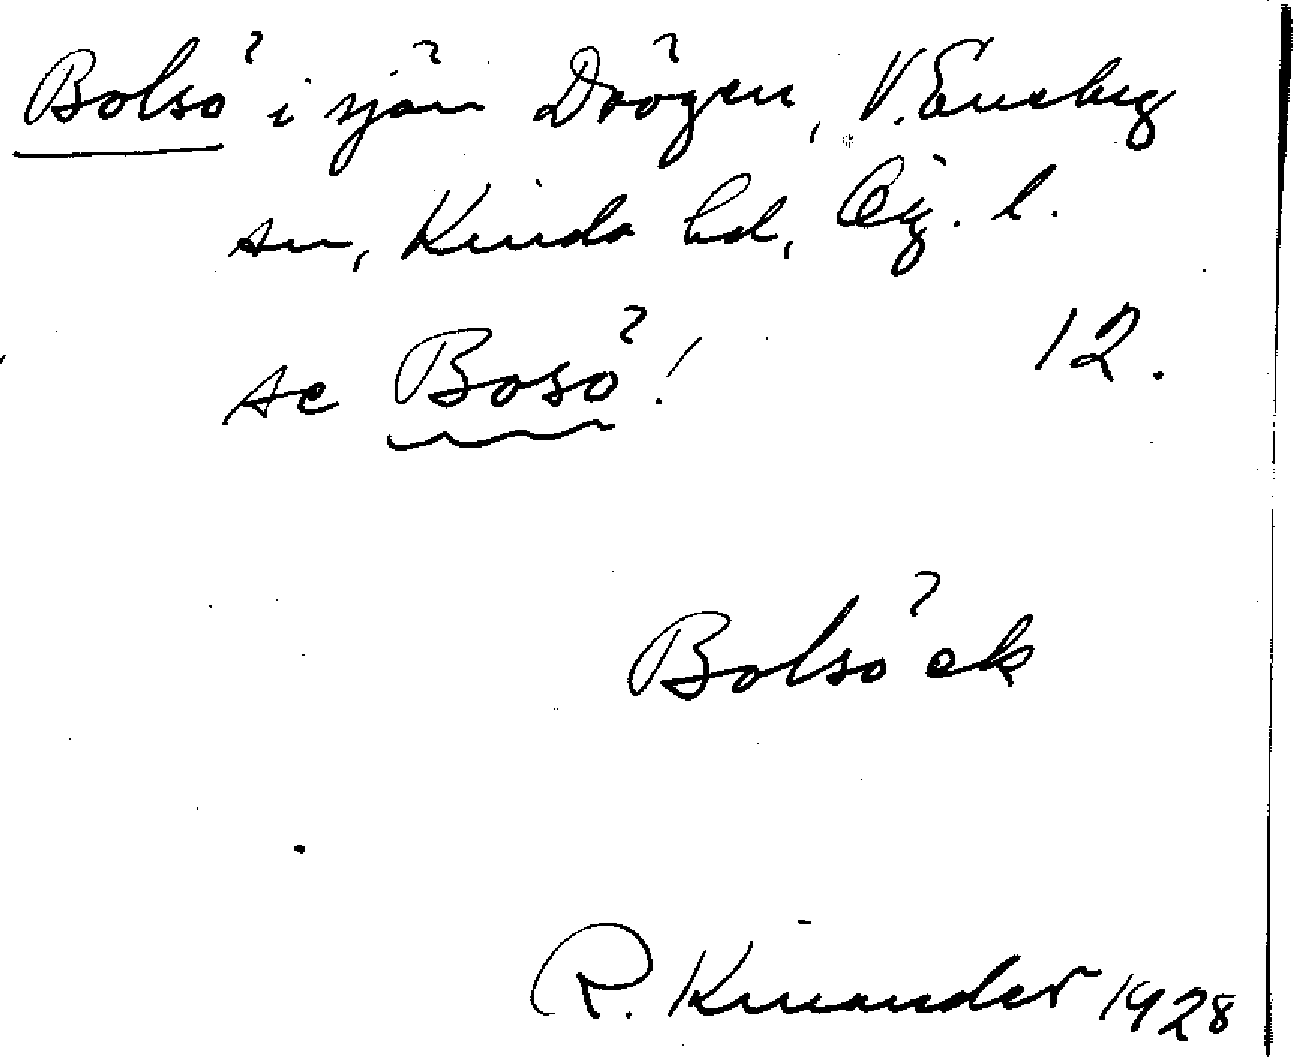 Bolsö i sjön Drögen, V. Eneby
sn, Kinda hd, Ög. l.
se Bosö! 12.
Bolsö ek
R. Kinander 1928